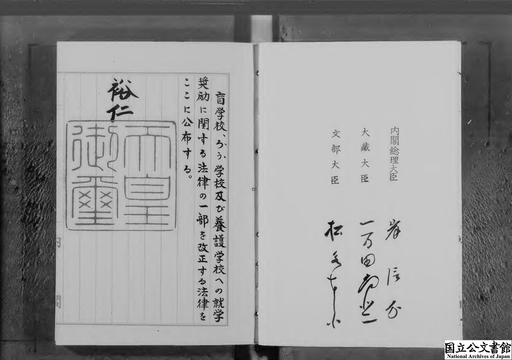 盲学校、ろう学校及び養護学校への就学
奨励に関する法律の一部を改正する法律を
ここに公布する。
裕仁
天皇
御璽
内閣総理大臣
大蔵大臣
文部大臣
岸信介
一万田尚登
松永東
国立公文書館
National Archives of Japan